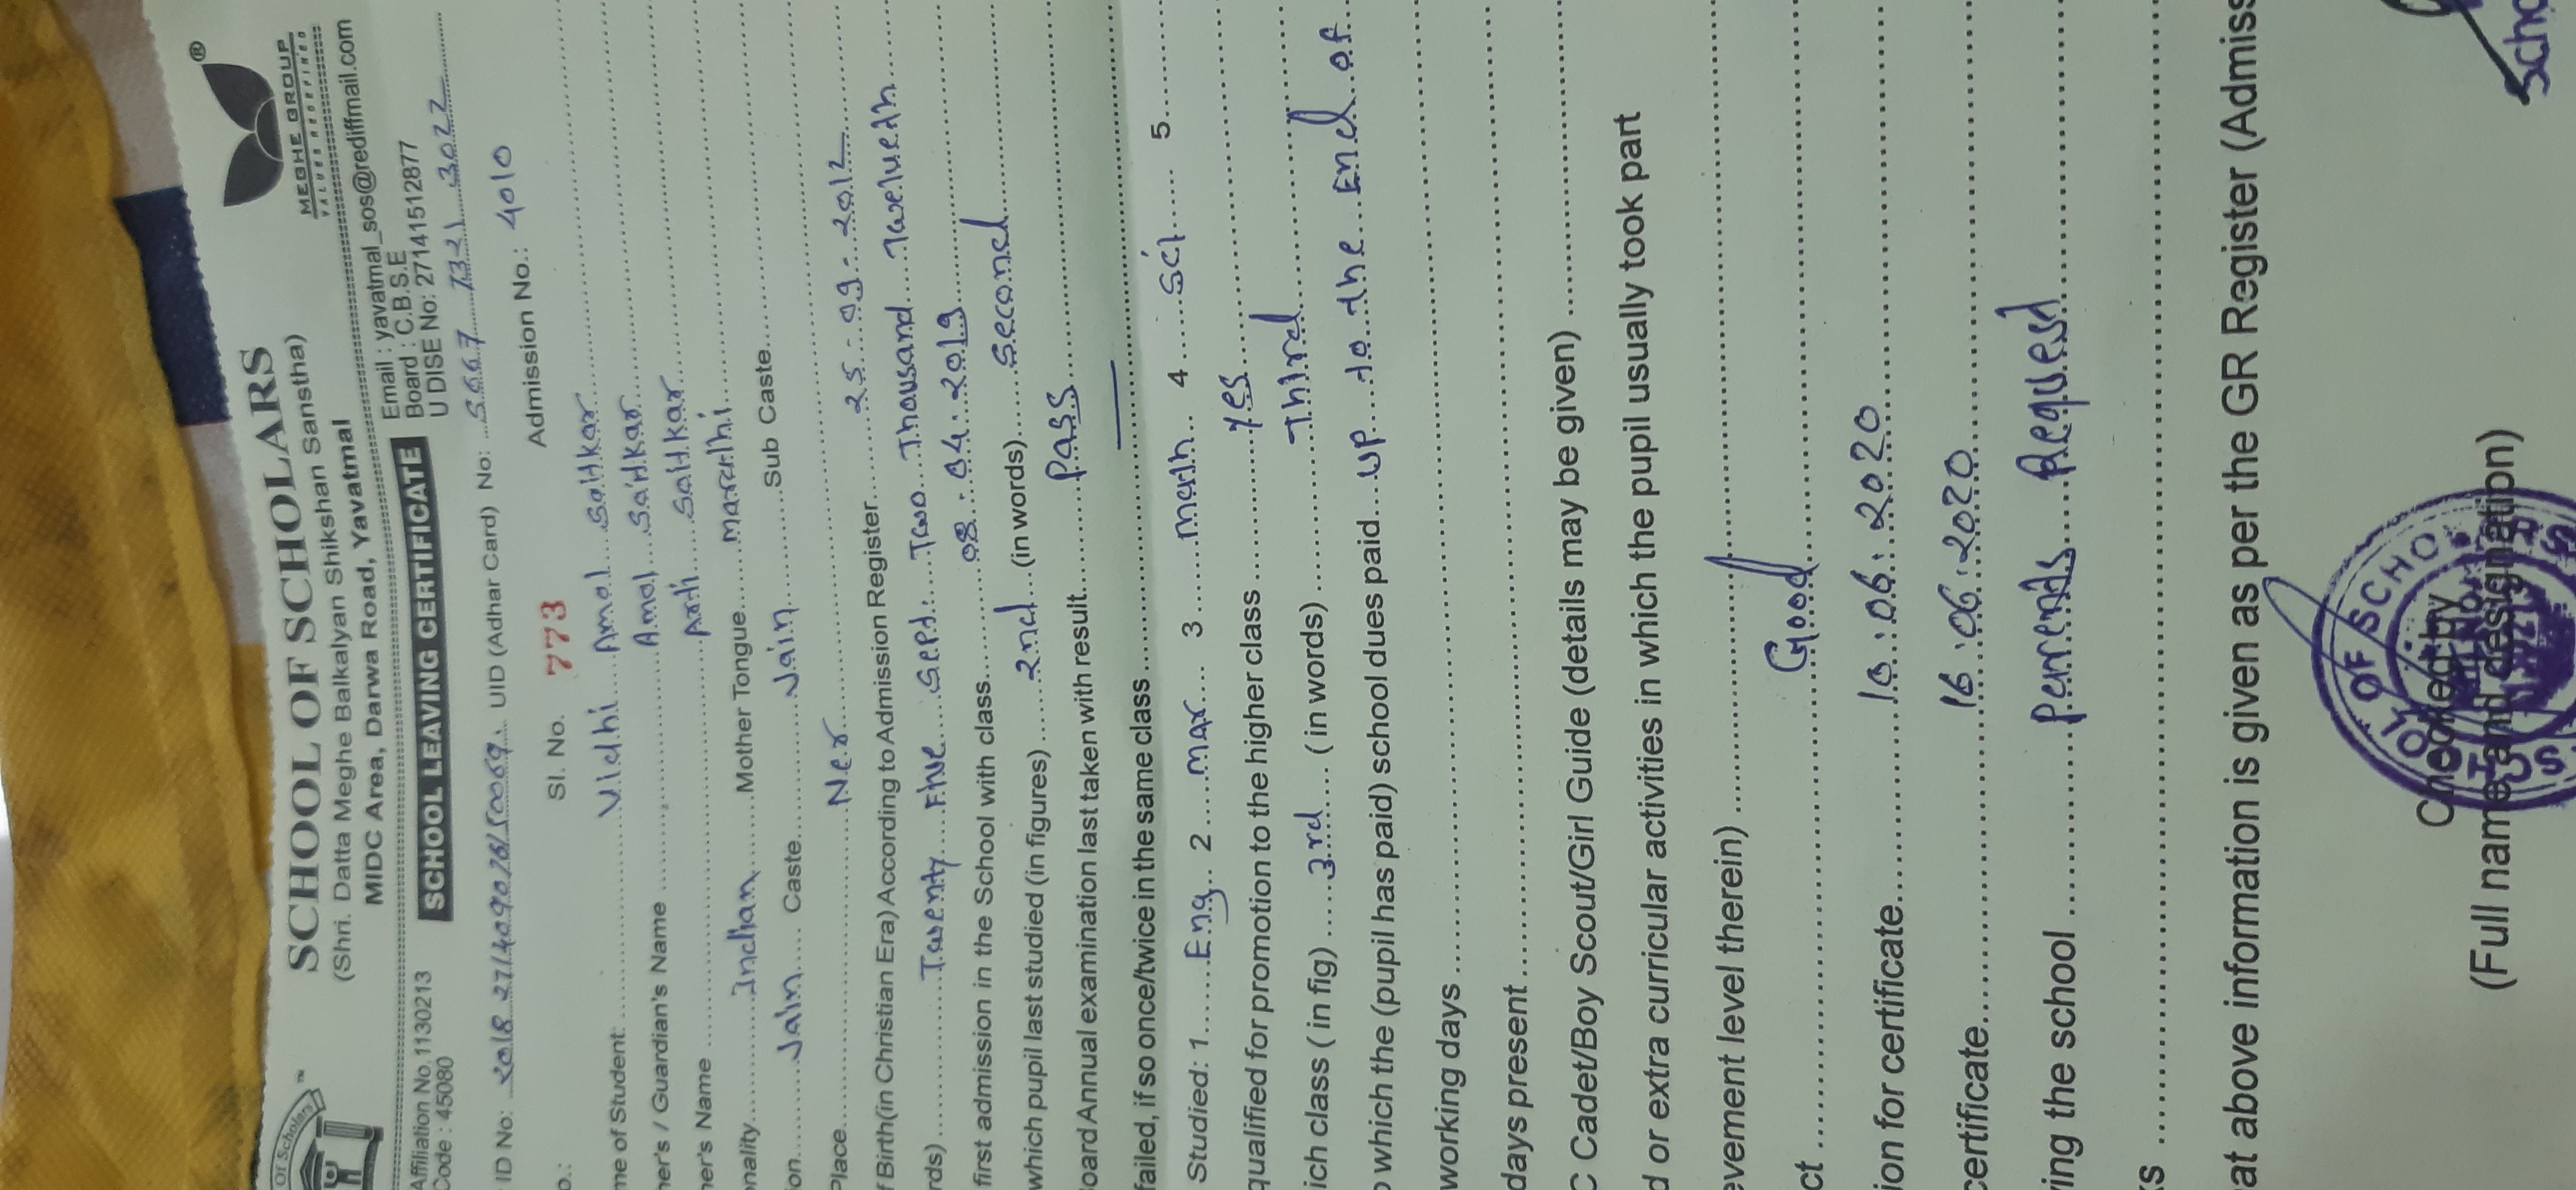 Of Scholars
SCHOOL OF SCHOLARS
(Shri. Datta Meghe Balkalyan Shikshan Sanstha)
MIDC Area, Darwa Road, Yavatmal
MEGHE GROUP
VALUES REDEFINED
Affiliation No.1130213
Code : 45080
SCHOOL LEAVING CERTIFICATE
Email : yavatmal_sos@rediffmail.com
Board : C.B.S.E
U DISE No: 27141512877
ID No: UID (Adhar Card) No: 5667 7321 3022
o.: Sl. No. 773 Admission No.: 4010
me of Student Vidhi Amol Saitkar
her's / Guardian's Name Amol Saitkar
her's Name Arti Saitkar
onality Indian Mother Tongue marathi
ion Jain Caste Jain Sub Caste
Place Ner
f Birth(in Christian Era) According to Admission Register 25-09-2012
rds) Twenty Five Sept. Two Thousand Twelveth
first admission in the School with class 08.04.2019
which pupil last studied (in figures) 2nd (in words) second
oard Annual examination last taken with result Pass
failed, if so once/twice in the same class —
Studied: 1 Eng. 2 mar 3 math 4 sci 5
qualified for promotion to the higher class yes
ich class ( in fig) 3rd ( in words) Third
o which the (pupil has paid) school dues paid up to the End of
working days
days present
C Cadet/Boy Scout/Girl Guide (details may be given)
d or extra curricular activities in which the pupil usually took part
evement level therein)
ct Good
ion for certificate 10.06.2020
certificate 16.06.2020
ing the school Parents Request
s
at above information is given as per the GR Register (Admiss
Checked by
(Full name and designation)
OF SCHO
Scho